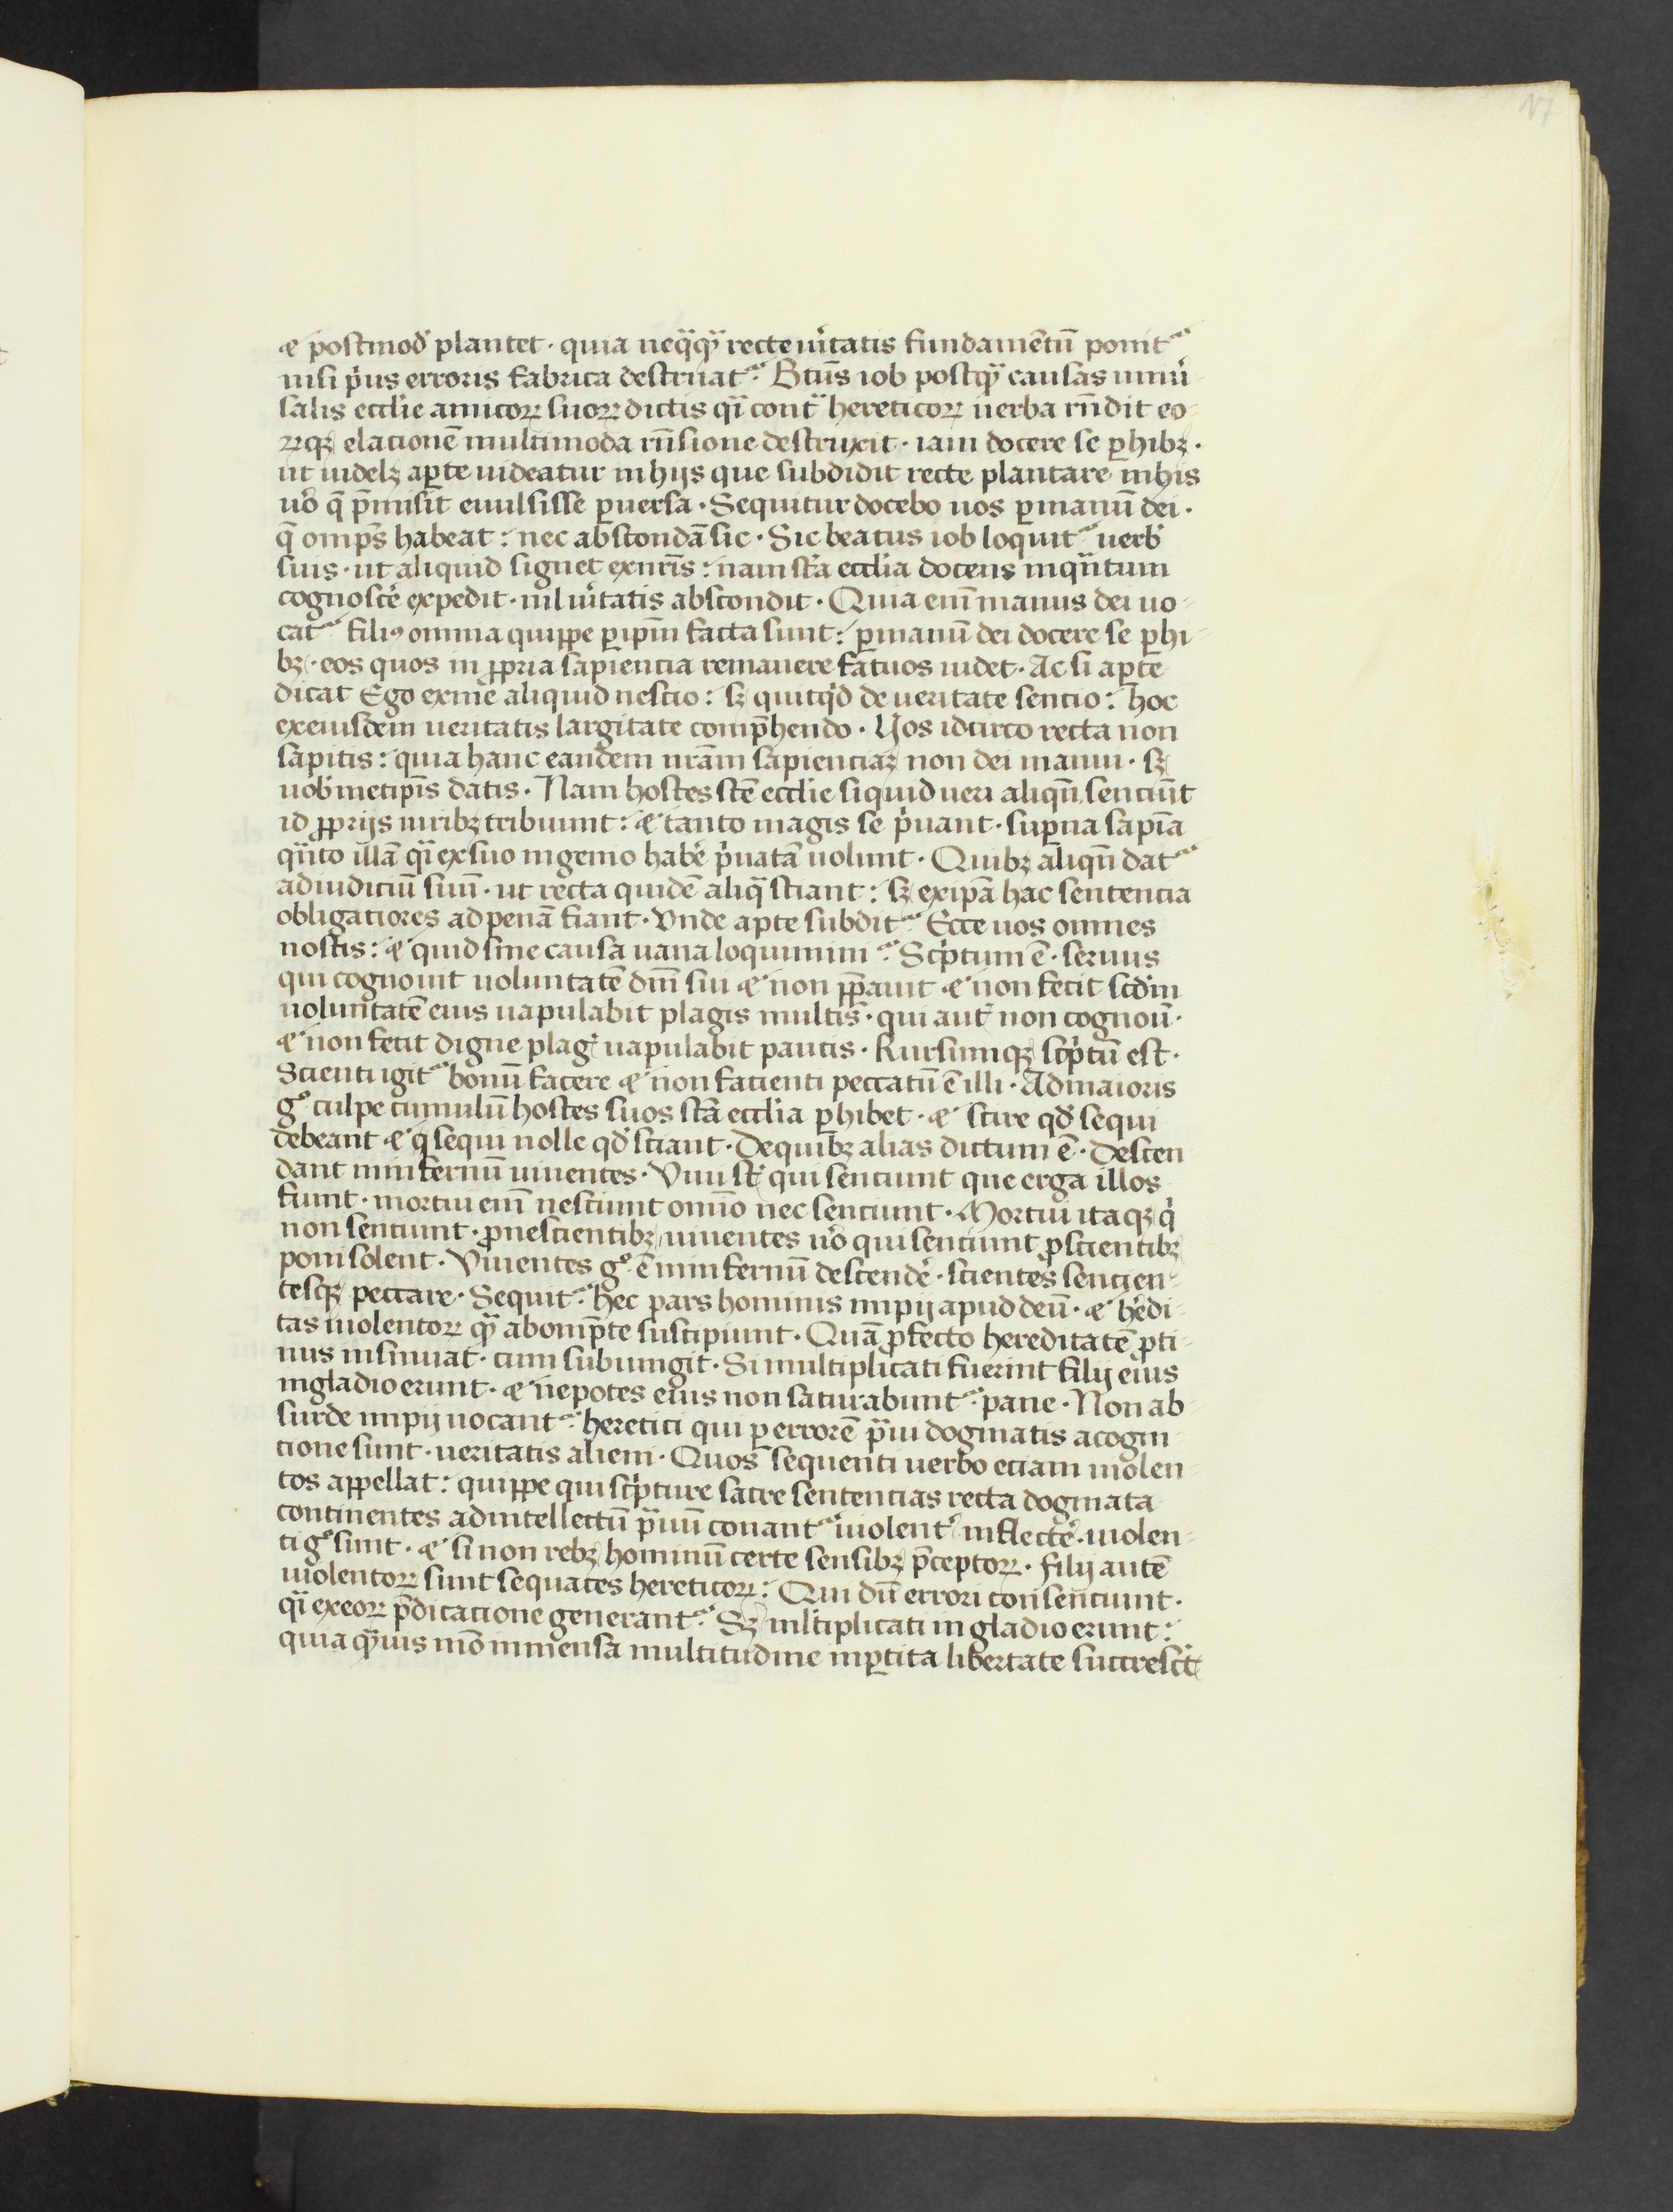 17
& postmod' plantet · quia neq̈q̈ recte ūitatis fundamētū ponit᷑
nisi p'us erroris fabrica destruat᷑ · Btūs iob postq̈ causas uniū
salis eccl'ie amicoꝝ suoꝝ dictis q̈i cont̃ hereticoꝝ uerba rn̄dit eo
ꝝqꝫ elationē multimoda rn̄sione destruxit · iam docere se ꝑhibꝫ ·
ut uidelꝫ aꝑte uideatur in hijs que subdidit recte plantare in his
uō q̄ p̄misit euulsisse ꝑuersa · Sequitur docebo uos ꝑ manū dei ·
q̄ omp̄s habeat : nec abscondā sic · Sic beatus iob loquit᷑ uerb'
suis · ut aliquid signet ex nr̄is : nam sc̄a eccl'ia docens inq̈ntum
cognoscē expedit · nil ūitatis abscondit · Quia eni manus dei uo
cat᷑ filiꝰ omnia quippe ꝑ ip̄m facta sunt : ꝑ manū dei docere se ꝑhi
bꝫ · eos quos in ꝓpria sapiencia remanere fatuos uidet · Ac si aꝑte
dicat Ego ex me aliquid nescio : sꝫ quitq'd de ueritate sentio : hoc
ex eiusdem ueritatis largitate comp̄hendo · Uos idcirco recta non
sapitis : quia hanc eandem nr̄am sapienciaꝫ non dei manui · sꝫ
uob' metip̄is datis · Nam hostes sc̄e eccl'ie siquid ueri aliqn̄ senciūt
id ꝓprijs uiribꝫ tribuunt : & tanto magis se p'uant · suꝑna sapiā
q̈nto illā q̈i ex suo ingenio habē p'uatā uolunt · Quibꝫ aliqn̄ dat᷑
ad iudiciū suū · ut recta quidē aliq̄ sciant : sꝫ ex ip̄a hac sentencia
obligatiores ad penā fiant · Vnde apte subdit᷑ · Ecce uos omnes
nostis : & quid sine causa uana loquimini᷑ · Sc'ptum ē · seruus
qui cognouit uoluntatē dn̄i sui & non p̄ꝑauit & non fecit scd̄m
uoluntatē eius uapulabit plagis multis · qui aut̄ non cognoū ·
& non fecit digne plag' uapulabit paucis · Rursumqꝫ sc'ptū est ·
Scienti igit᷑ bonū facere & non facienti peccatū ē illi · Ad maioris
gͦ culpe cumulū hostes suos sc̄a eccl'ia ꝑhibet · & scire qd' sequi
debeant & q̄ sequi nolle qd' sciant · De quibꝫ alias dictum ē · Descen
dant in infernū uiuentes · Viui st' qui senciunt que erga illos
fiunt · mortui eni nesciunt omīo nec senciunt · Mortui itaqꝫ q'
non senciunt · ꝓ nescientibꝫ uiuentes uō qui senciunt ꝓ scientibꝫ
poni solent · Viuentes gͦ ē in infernū descendē · scientes sencien
tesqꝫ peccare · Sequit᷑ · hec pars hominis impij apud deū · & hēdi
tas uiolentoꝝ q̈ ab omp̄te suscipiunt · Quā ꝓfecto hereditatē ꝓti
nus insinuat · cum subiungit · Si multiplicati fuerint filij eius
in gladio erunt · & nepotes eius non saturabunt᷑ · pane · Non ab
surde impij uocant᷑ · heretici qui ꝑ errorē p̈ui dogmatis a cogni
tione sunt · ueritatis alieni · Quos sequenti uerbo etiam uiolen
tos appellat : quippe qui sc'pture sacre sentencias recta dogmata
continentes ad intellectū p̈uū conant᷑ uiolent' inflectē · uiolen
ti gͦ sunt · & si non rebꝫ hominū certe sensibꝫ p̄ceptoꝝ · filij autē
uiolentoꝝ sunt sequaces hereticoꝝ : Qui dū errori consenciunt ·
q̈i ex eoꝝ p̄dicacione generant᷑ · Sꝫ mltiplicati in gladio erunt :
quia q̈uis mō immensa multitudine inꝑtita libertate succresc̄t